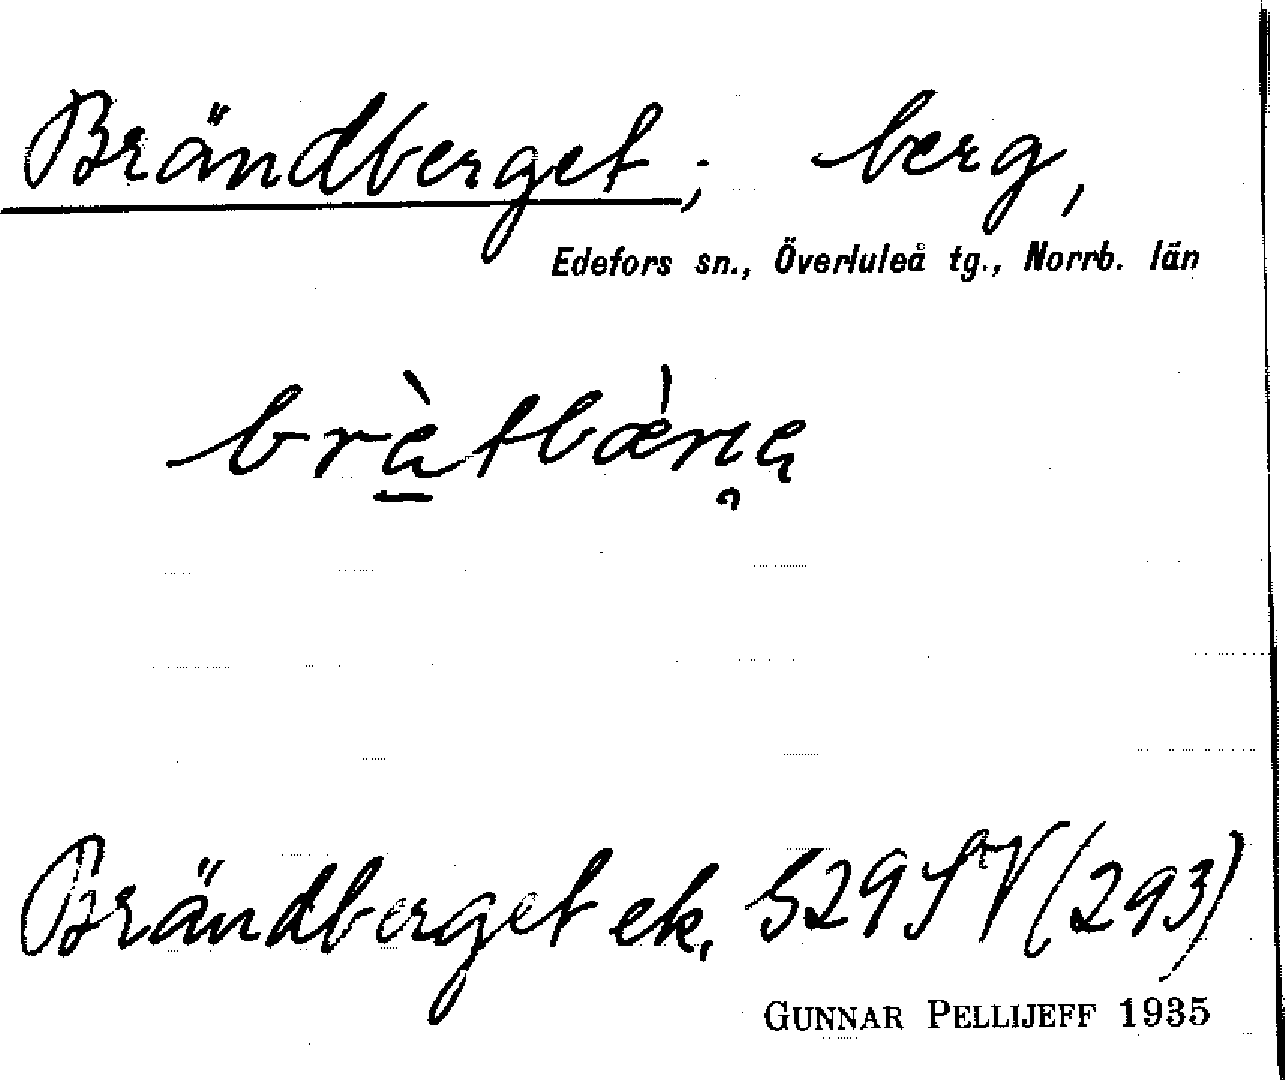 Brändberget; berg,
Edefors sn., Överluleå tg., Norrb. län
Brändberget ek. S29SV (293)
GUNNAR PELLIJEFF 1935